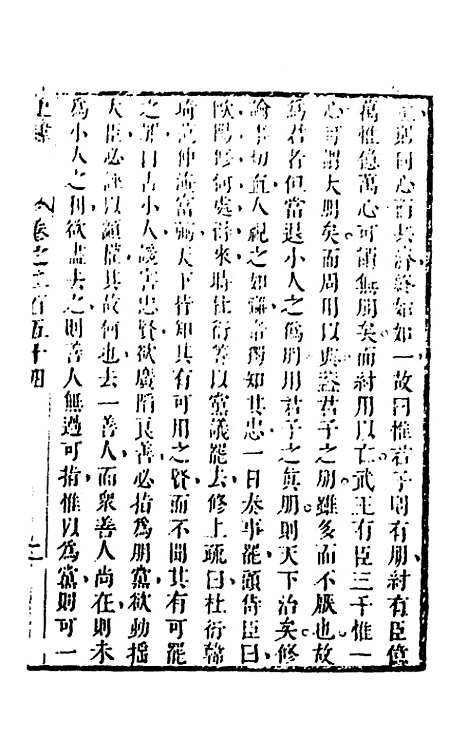 國則同心而共濟終始如一故曰惟君子則有朋紂有臣億
萬惟億萬心可謂無朋矣而紂用以亡武王有臣三千惟一
心可謂大朋矣而周用以興蓋君子之朋雖多而不厭也故
為君者但當退小人之偽朋用君子之真朋則天下治矣修
論事切直人視之如讎帝獨知其忠一日奏事罷顧侍臣曰
歐陽修何處得來時杜衍等以黨議罷去修上疏曰杜衍韓
琦范仲淹富弼天下皆知其有可用之賢而不聞其有可罷
之罪曰古小人讒害忠賢欲廣陷良善必指為朋黨欲動搖
大臣必誣以顓權其故何也去一善人而眾善人尚在則未
為小人之利欲盡去之則善人無過可指惟以為黨則可一
卷之二百五十四